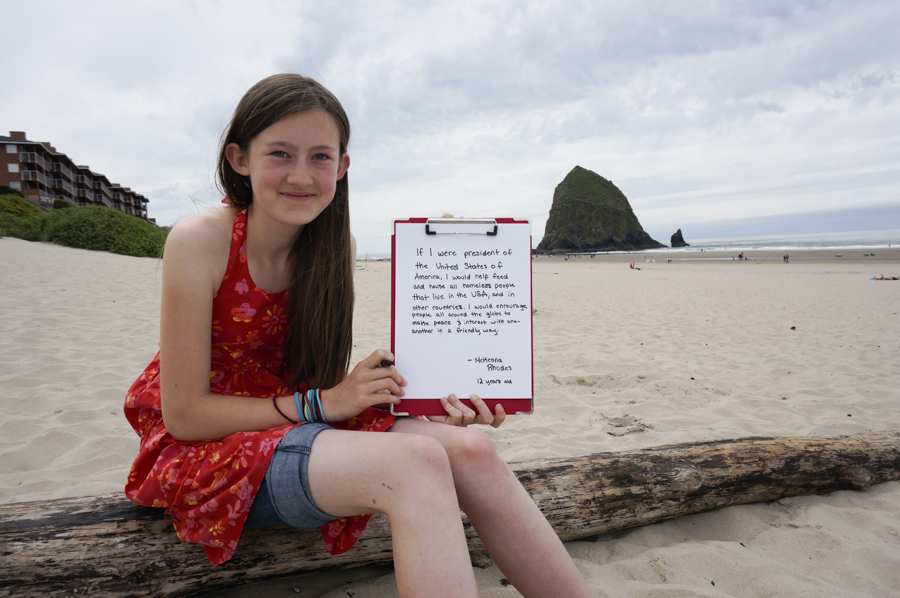 If I were president of
the United States of
America, I would help feed
and house all homeless people
that live in the USA, and in
other countries. I would encourage
people all around the globe to
make peace & interact with one-
another in a friendly way.
- McKenna
Rhodes
12 years old